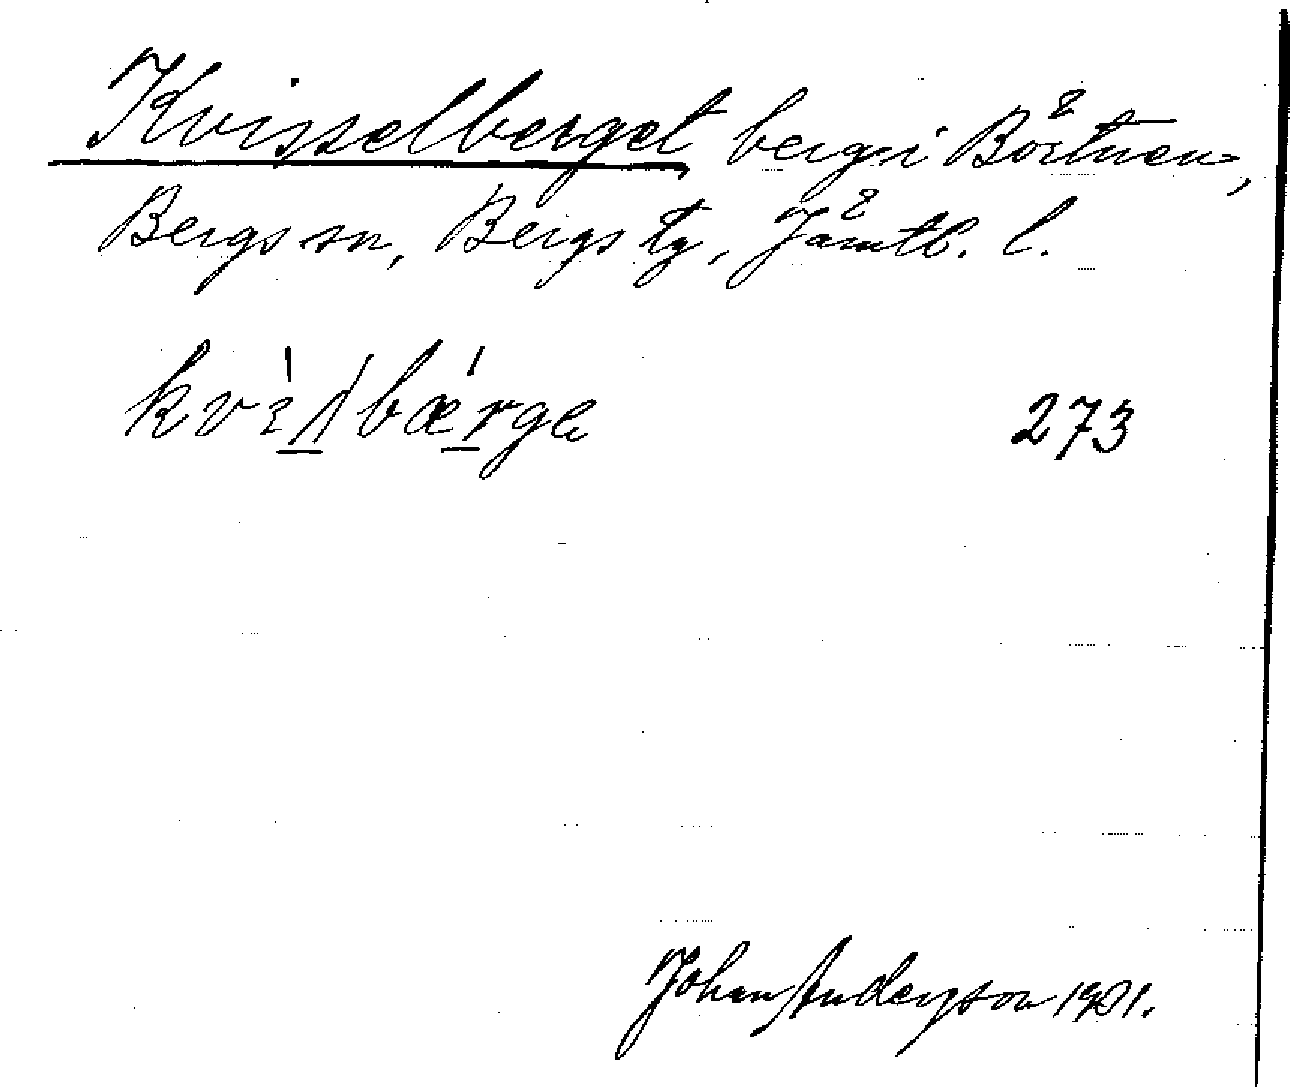 Kvisselberget berg i Börtnen,
Bergs sn, Bergs tg, Jämtl. l.
273
Johan Anderson 1901.